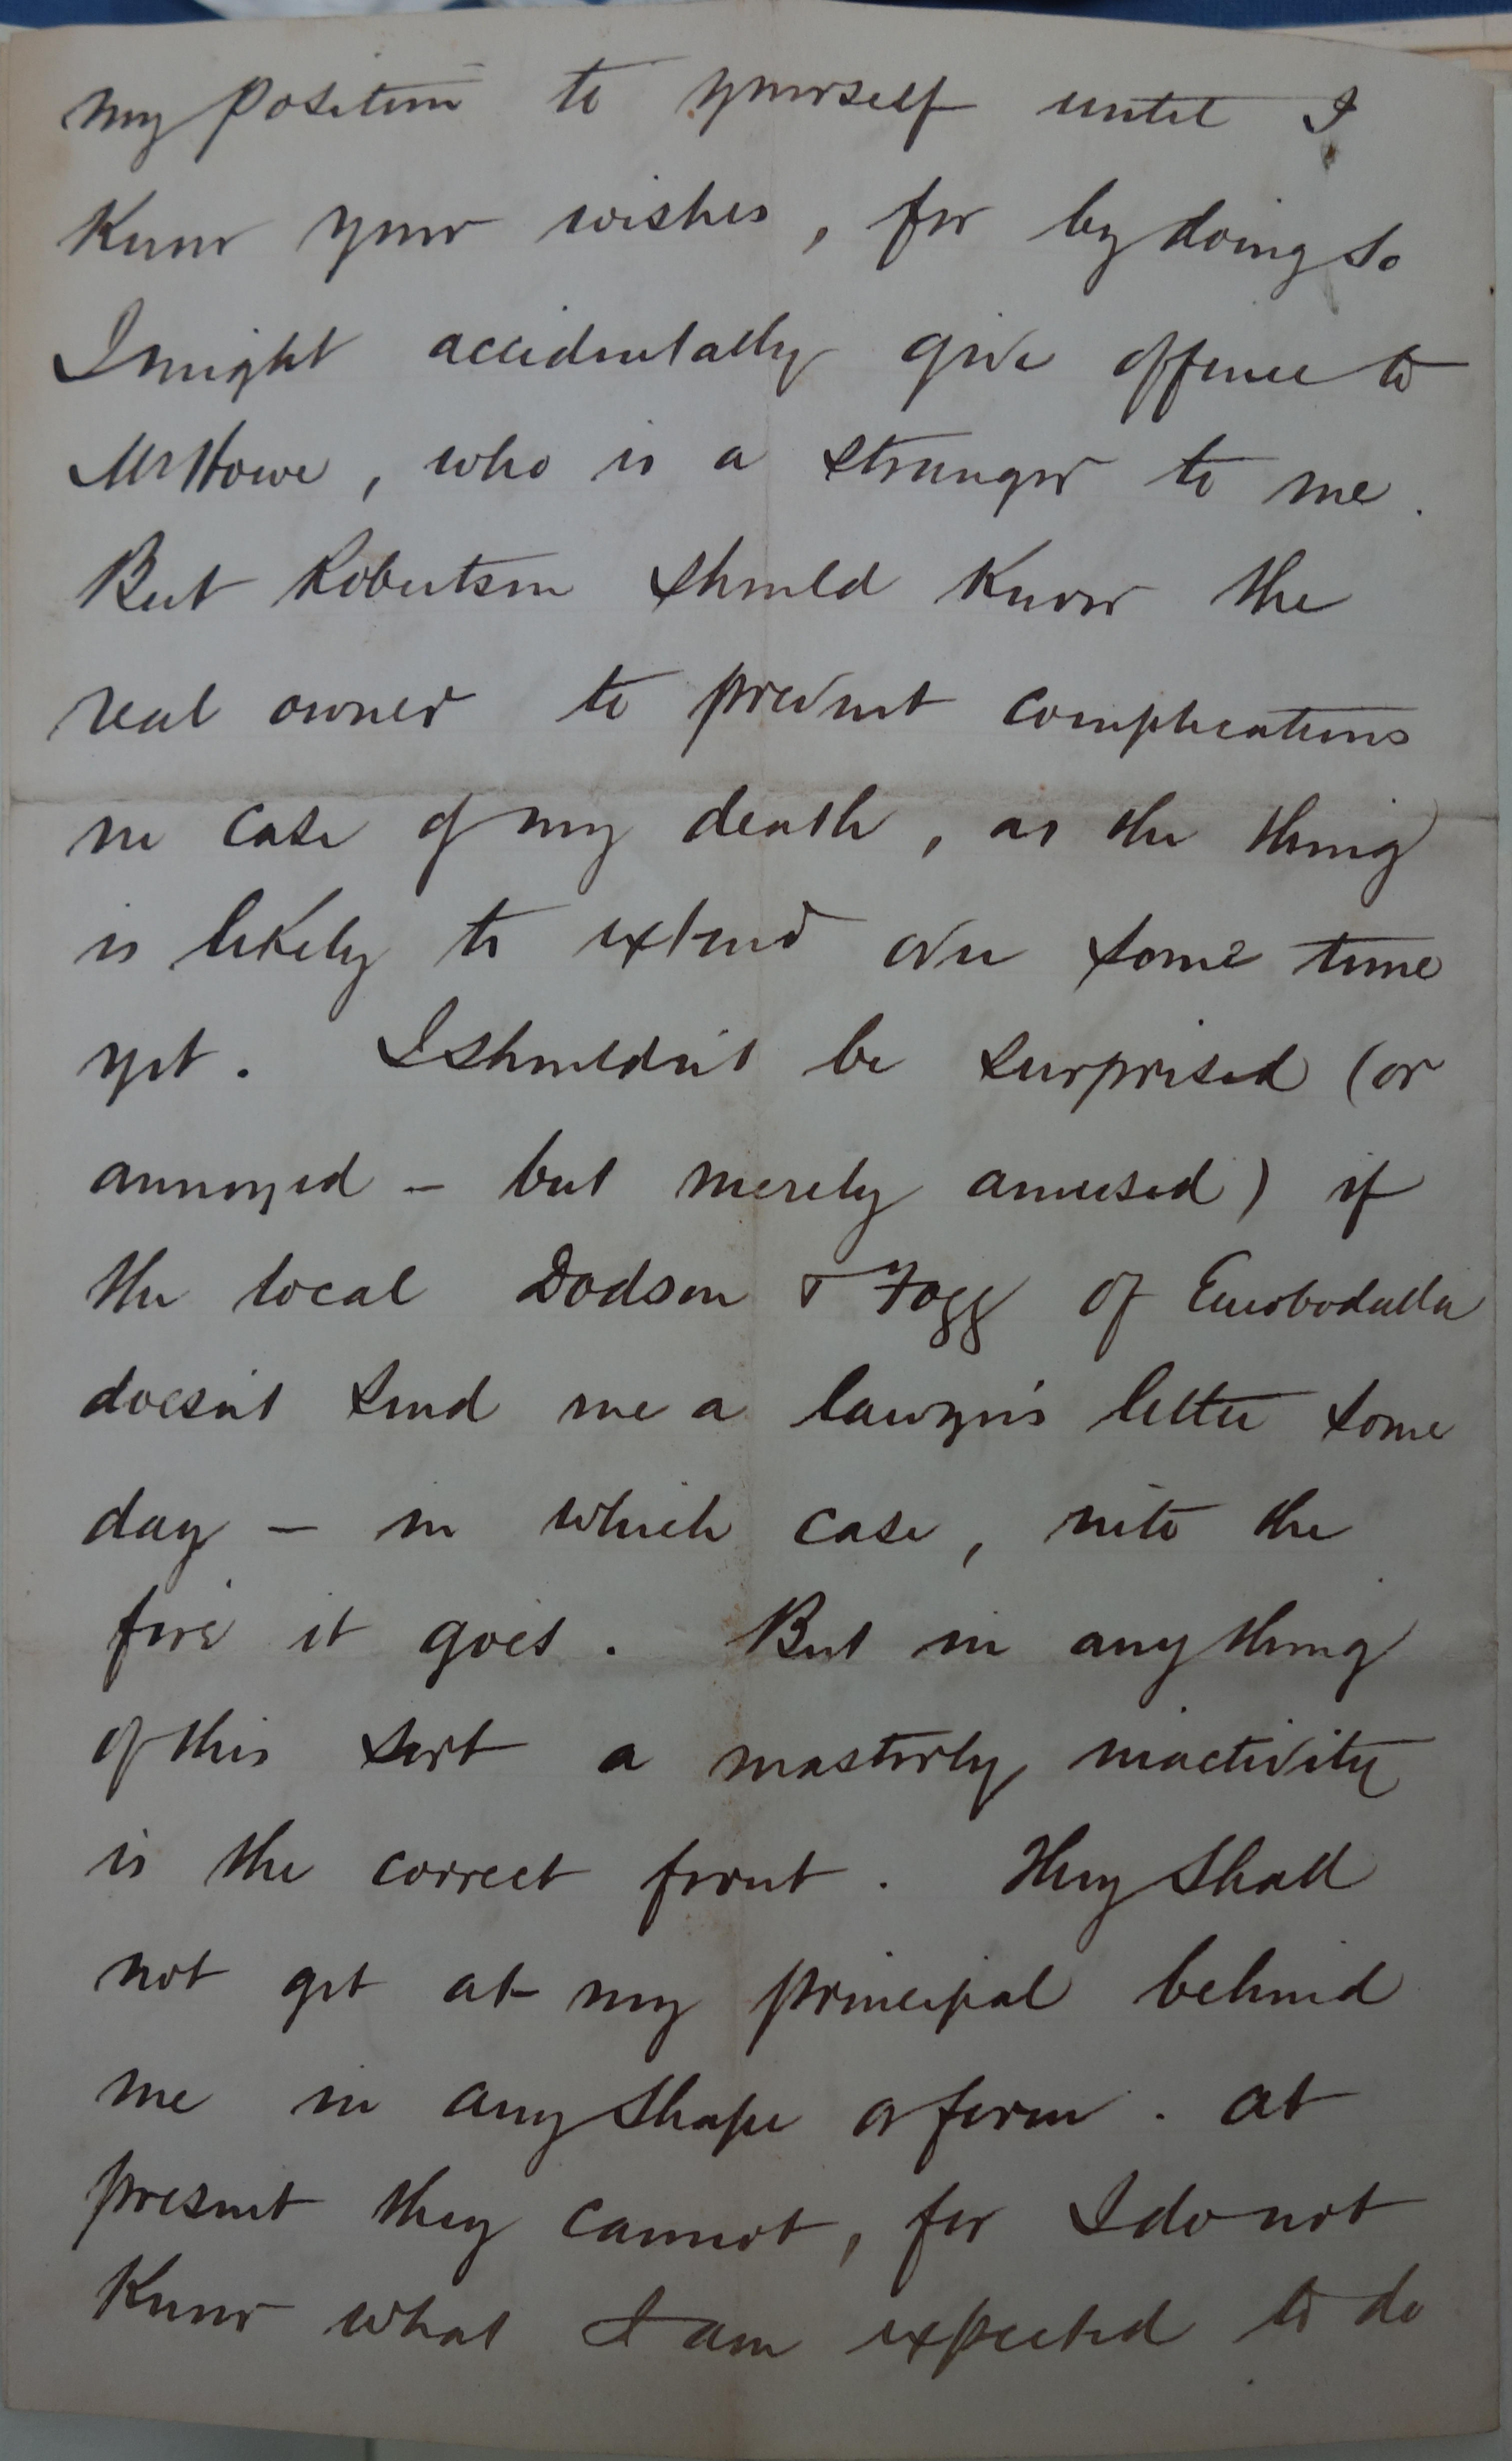 my position to yourself until I
know your wishes, for by doing so
I might accidentally give offence to
Mr Howe, who is a stranger to me.
But Robertson should know the
real owner to prevent complications
in case of my death, as the thing
is likely to extend over some time
yet. I shouldn't be surprised (or
annoyed - but merely amused) if
the local Dodson & Fogg of Eurobodalla
doesn't send me a lawyer's letter some
day - in which case, into the
fire it goes. But in anything
of this sort a masterly inactivity
is the correct front. They shall
not get at my principal behind
me in any shape or form. At
present they cannot, for I do not
know what I am expected to do